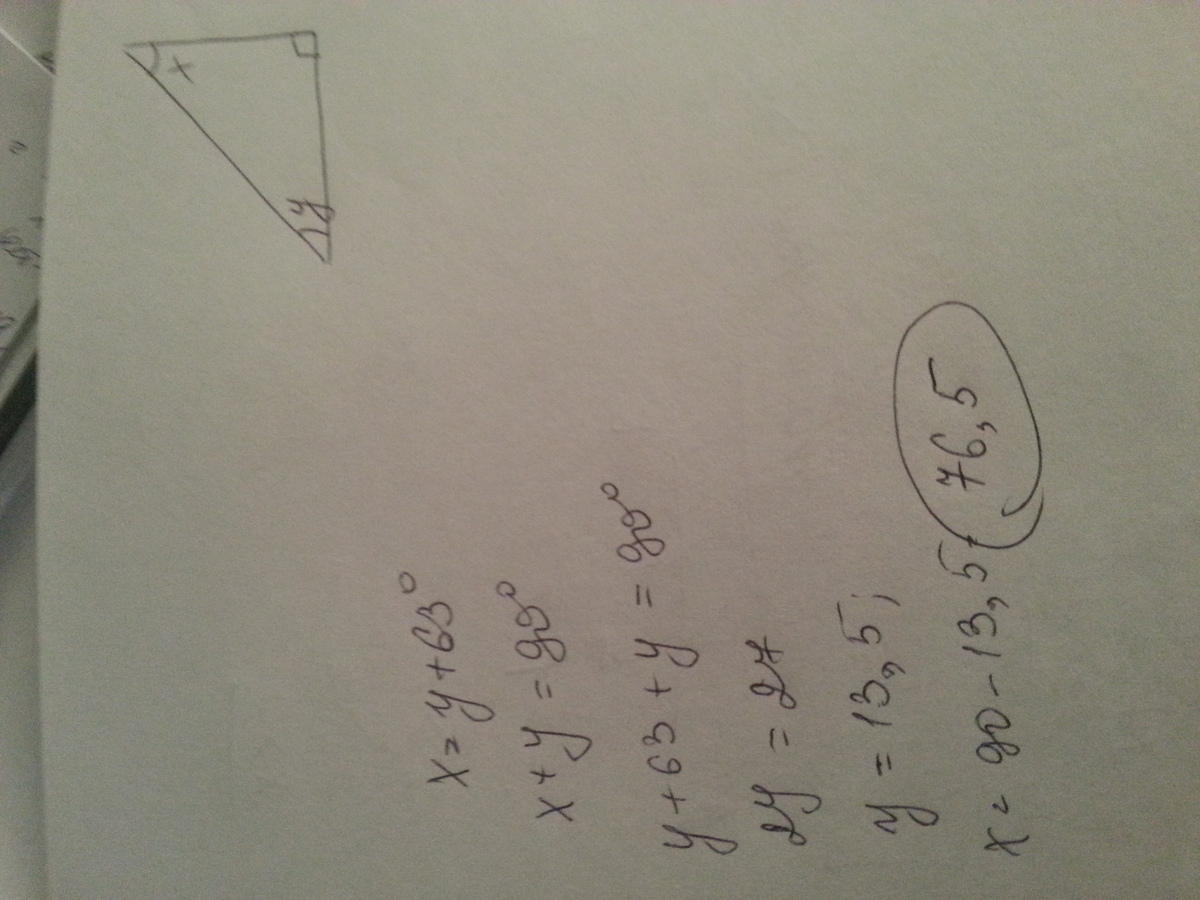 x
y
x = y + 63°
x + y = 90°
y + 63 + y = 90°
2y = 27
y = 13,5;
x = 90 - 13,5 = 76,5